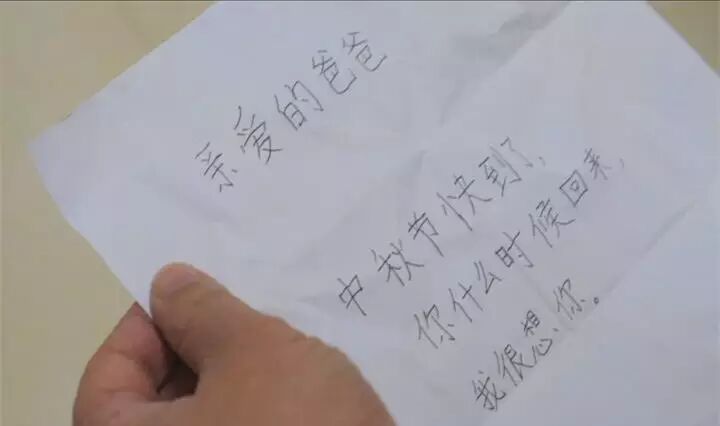 亲爱的爸爸
中秋节快到了,
你什么时候回来,
我很想你。